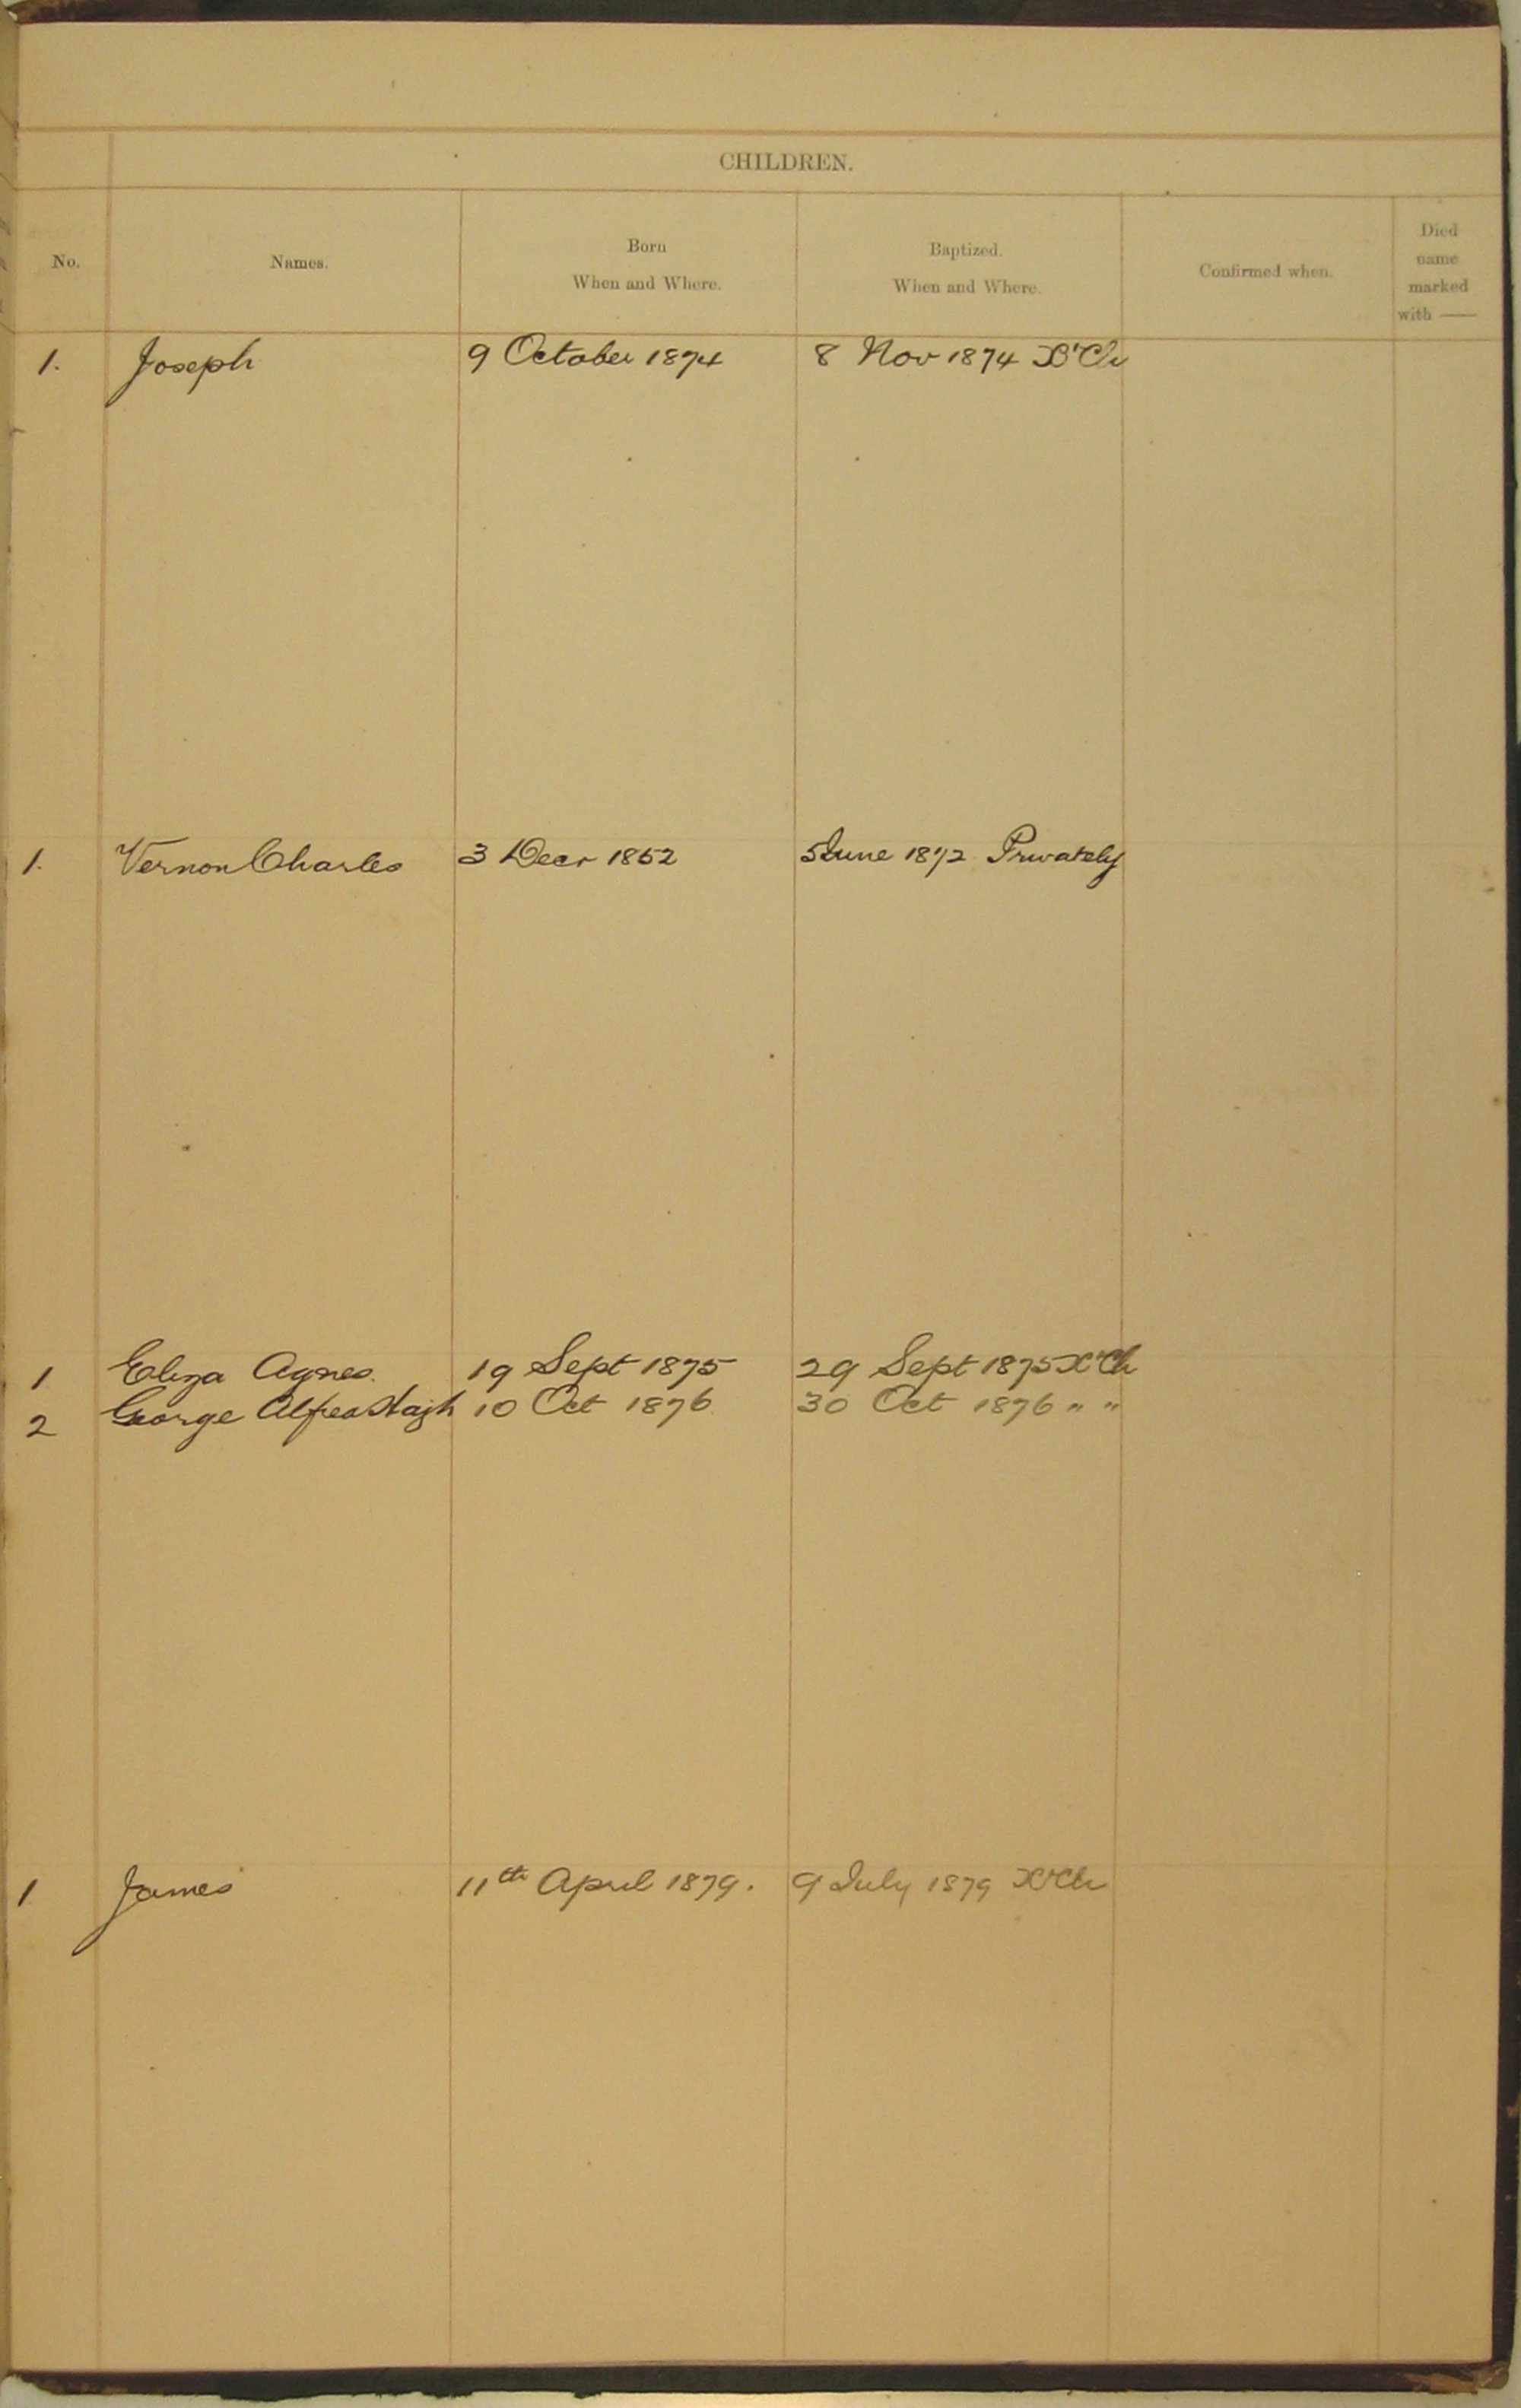 CHILDREN.
No. Names. Born When and Where. Baptized. When and Where. Confirmed when. Died name marked with —
1. Joseph 9 October 1874 8 Nov 1874 X'Ch
1. Vernon Charles 3 Decr 1852 5 June 1872 Privately
1 Eliza Agnes. 19 Sept 1875 29 Sept 1875 X'Ch
2 George Alfred Haigh 10 Oct 1876 30 Oct 1876 " "
1 James 11th April 1879. 9 July 1879 X'Ch